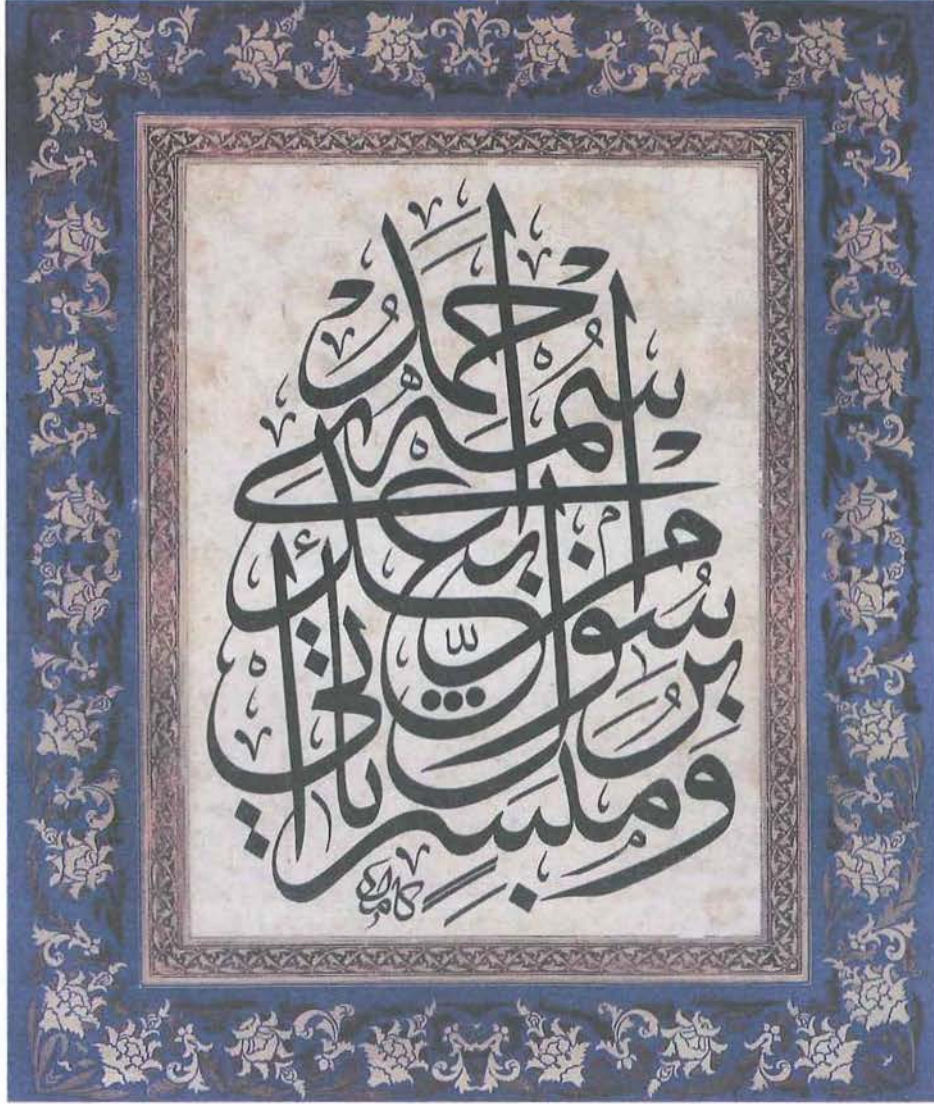 وَمُبَشِّرًا بِرَسُولٍ يَأْتِي مِنْ بَعْدِي اسْمُهُ أَحْمَدُ